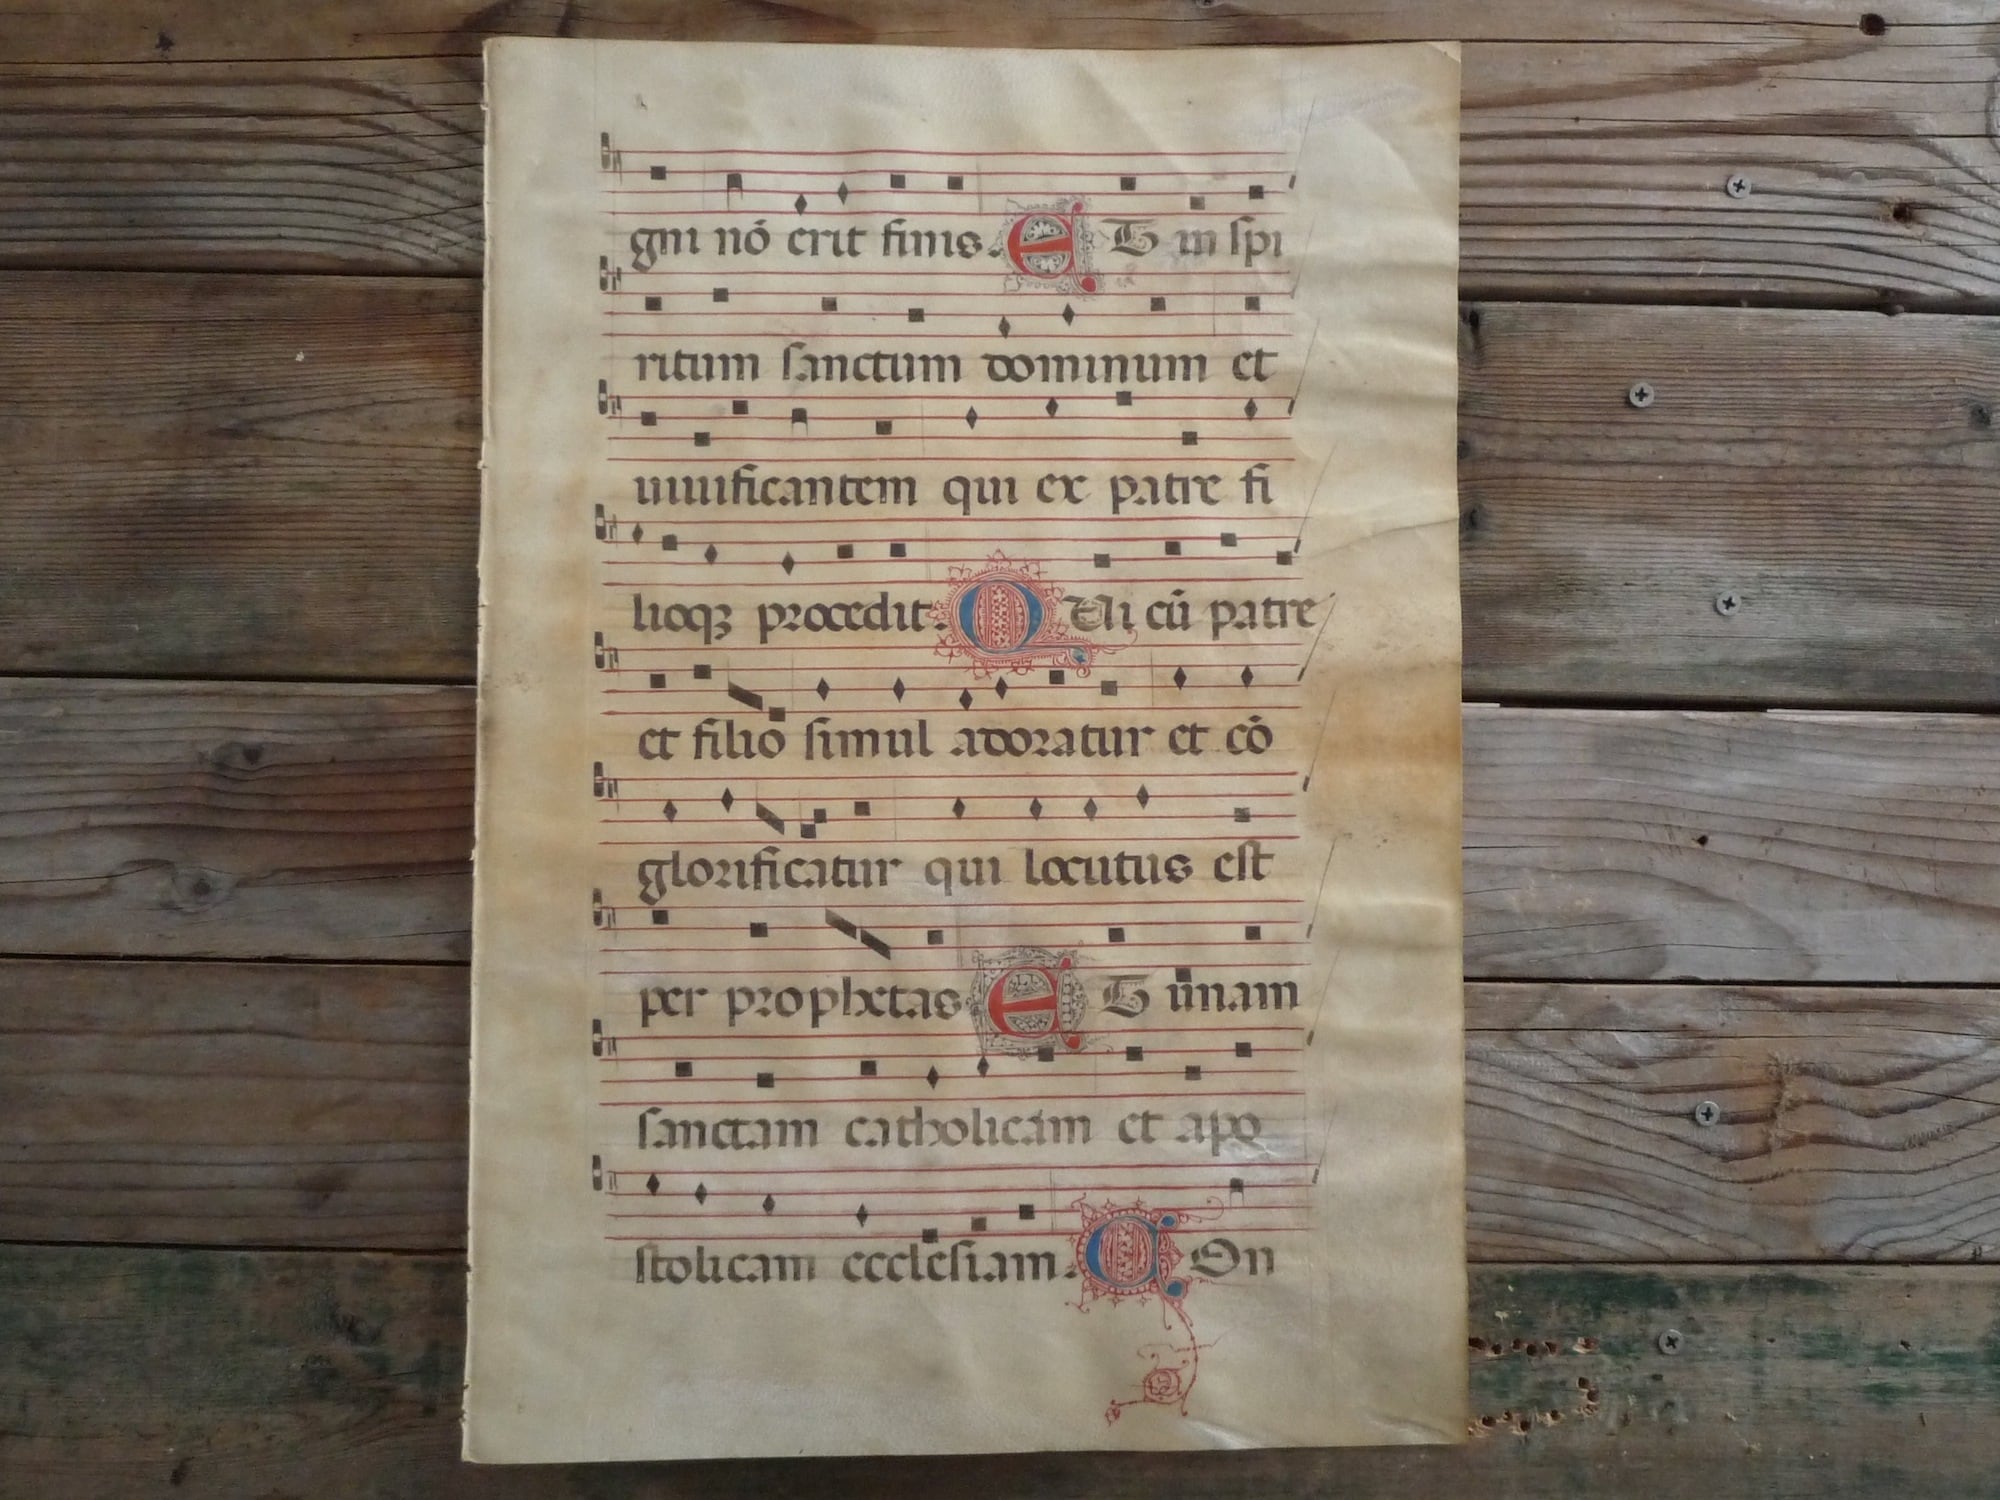 gni nō erit finis. ET in spi
ritum sanctum dominum et
uiuificantem qui ex patre fi
lioqꝫ procedit. QUi cū patre
et filio simul adoratur et cō
glorificatur qui locutus est
per prophetas ET unam
sanctam catholicam et apo
stolicam ecclesiam. COn